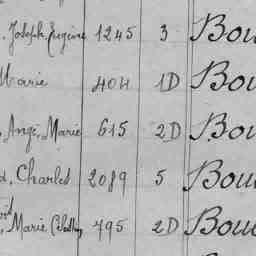 , Joseph, Eugène 1245 3 Bou
Marie 404 1D Bou
, Ange, Marie 615 2D Bou
d, Charles 2089 5 Bou
, Marie 795 2D Bou